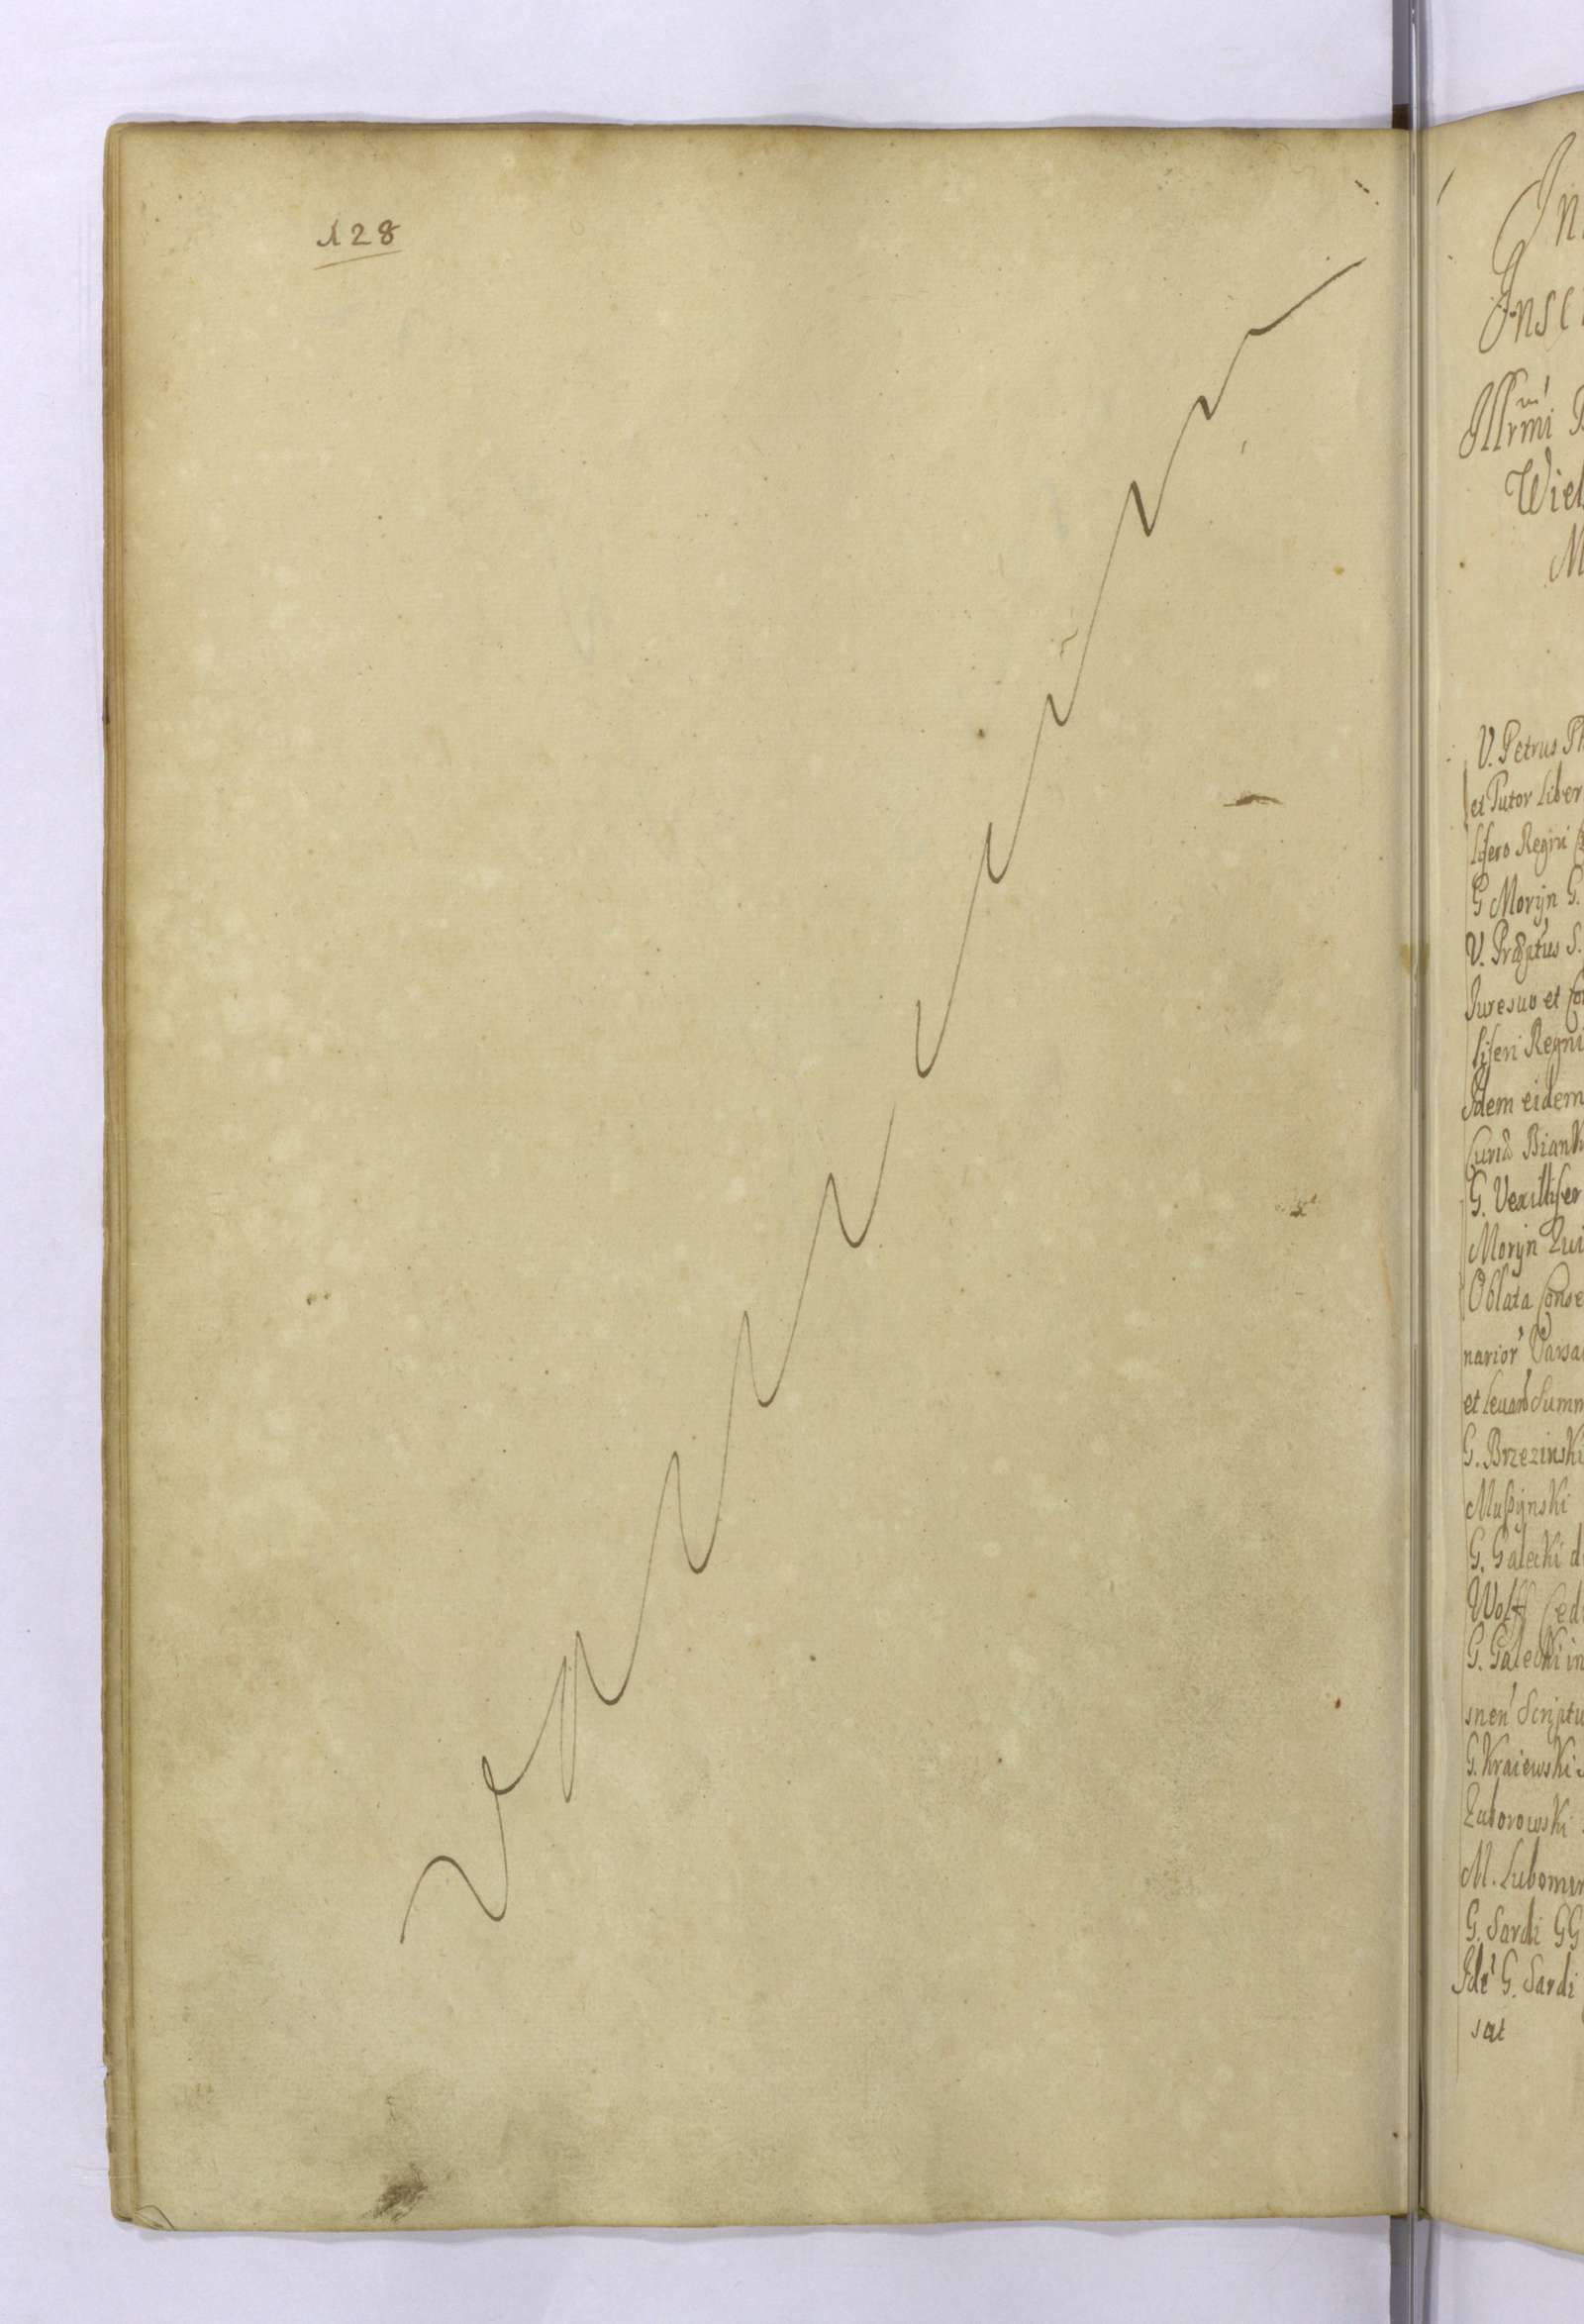 128
vacuum
In
Insc
Illrmi
Wiel
M
V. Petrus Ph
et Tutor Liber
lifero Regni
G Moryn G.
V. Præfatus S.
Juresuo et Con
liferi Regni
Idem eidem
Curiæ Biank
G. Vexillifer
Moryn
Oblata Conse
narior Varsa
et Summ
G. Brzezinski
G. Galecki d
Wolff Ced
G. Galecki in
snen Scriptu
G. Kraiewski
Zaborowski
M. Lubomir
G. Sardi GG
Ide G. Sardi
sat